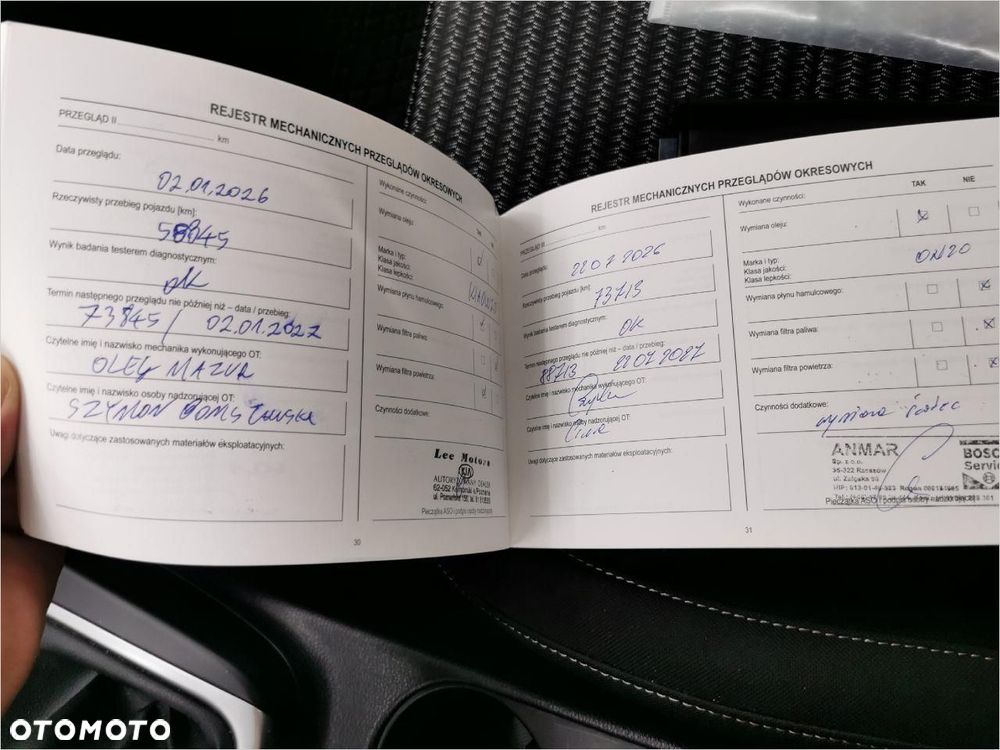 REJESTR MECHANICZNYCH PRZEGLĄDÓW OKRESOWYCH
PRZEGLĄD II km
Data przeglądu:
02.01.2026
Rzeczywisty przebieg pojazdu [km]:
58845
Wynik badania testerem diagnostycznym:
OK
Termin następnego przeglądu nie później niż – data / przebieg:
73845 / 02.01.2027
Czytelne imię i nazwisko mechanika wykonującego OT:
OLEG MAZUR
Czytelne imię i nazwisko osoby nadzorującej OT:
SZYMON
Uwagi dotyczące zastosowanych materiałów eksploatacyjnych:
Wykonane czynności:
Wymiana oleju:
Marka i typ:
Klasa jakości:
Klasa lepkości:
Wymiana płynu hamulcowego:
Wymiana filtra paliwa:
Wymiana filtra powietrza:
Czynności dodatkowe:
Lee Motors
KIA
AUTORYZOWANY DEALER
62-052 Komorniki k.Poznania
Pieczątka ASO i podpis osoby nadzorującej
30
REJESTR MECHANICZNYCH PRZEGLĄDÓW OKRESOWYCH
PRZEGLĄD III km
Data przeglądu:
22 07 2026
Rzeczywisty przebieg pojazdu [km]:
73713
Wynik badania testerem diagnostycznym:
OK
Termin następnego przeglądu nie później niż – data / przebieg:
88713 22 07 2027
Czytelne imię i nazwisko mechanika wykonującego OT:
Czytelne imię i nazwisko osoby nadzorującej OT:
Uwagi dotyczące zastosowanych materiałów eksploatacyjnych:
Wykonane czynności: TAK NIE
Wymiana oleju:
Marka i typ:
Klasa jakości:
Klasa lepkości:
OW20
Wymiana płynu hamulcowego:
Wymiana filtra paliwa:
Wymiana filtra powietrza:
Czynności dodatkowe:
wymiana
ANMAR
Sp. z o.o.
35-322 Rzeszów
BOSCH
Service
Pieczątka ASO i podpis osoby nadzorującej
31
OTOMOTO